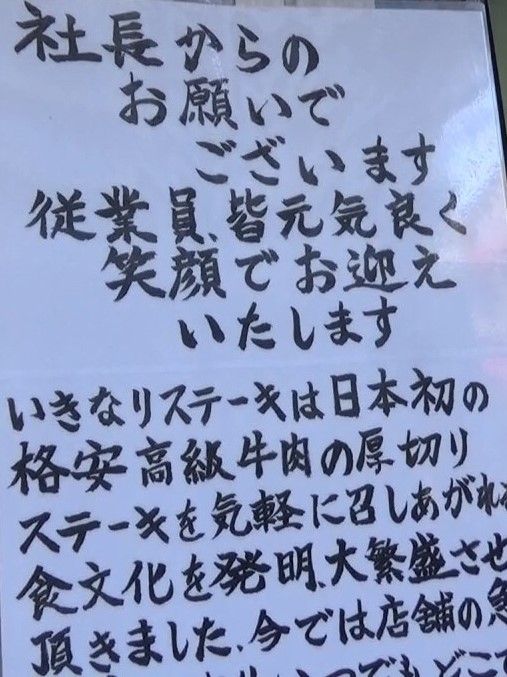 社長からの
お願いで
ございます
従業員、皆元気良く
笑顔でお迎え
いたします
いきなりステーキは日本初の
格安高級牛肉の厚切り
ステーキを気軽に召しあがれ
食文化を発明、大繁盛させ
頂きました、今では店舗の急